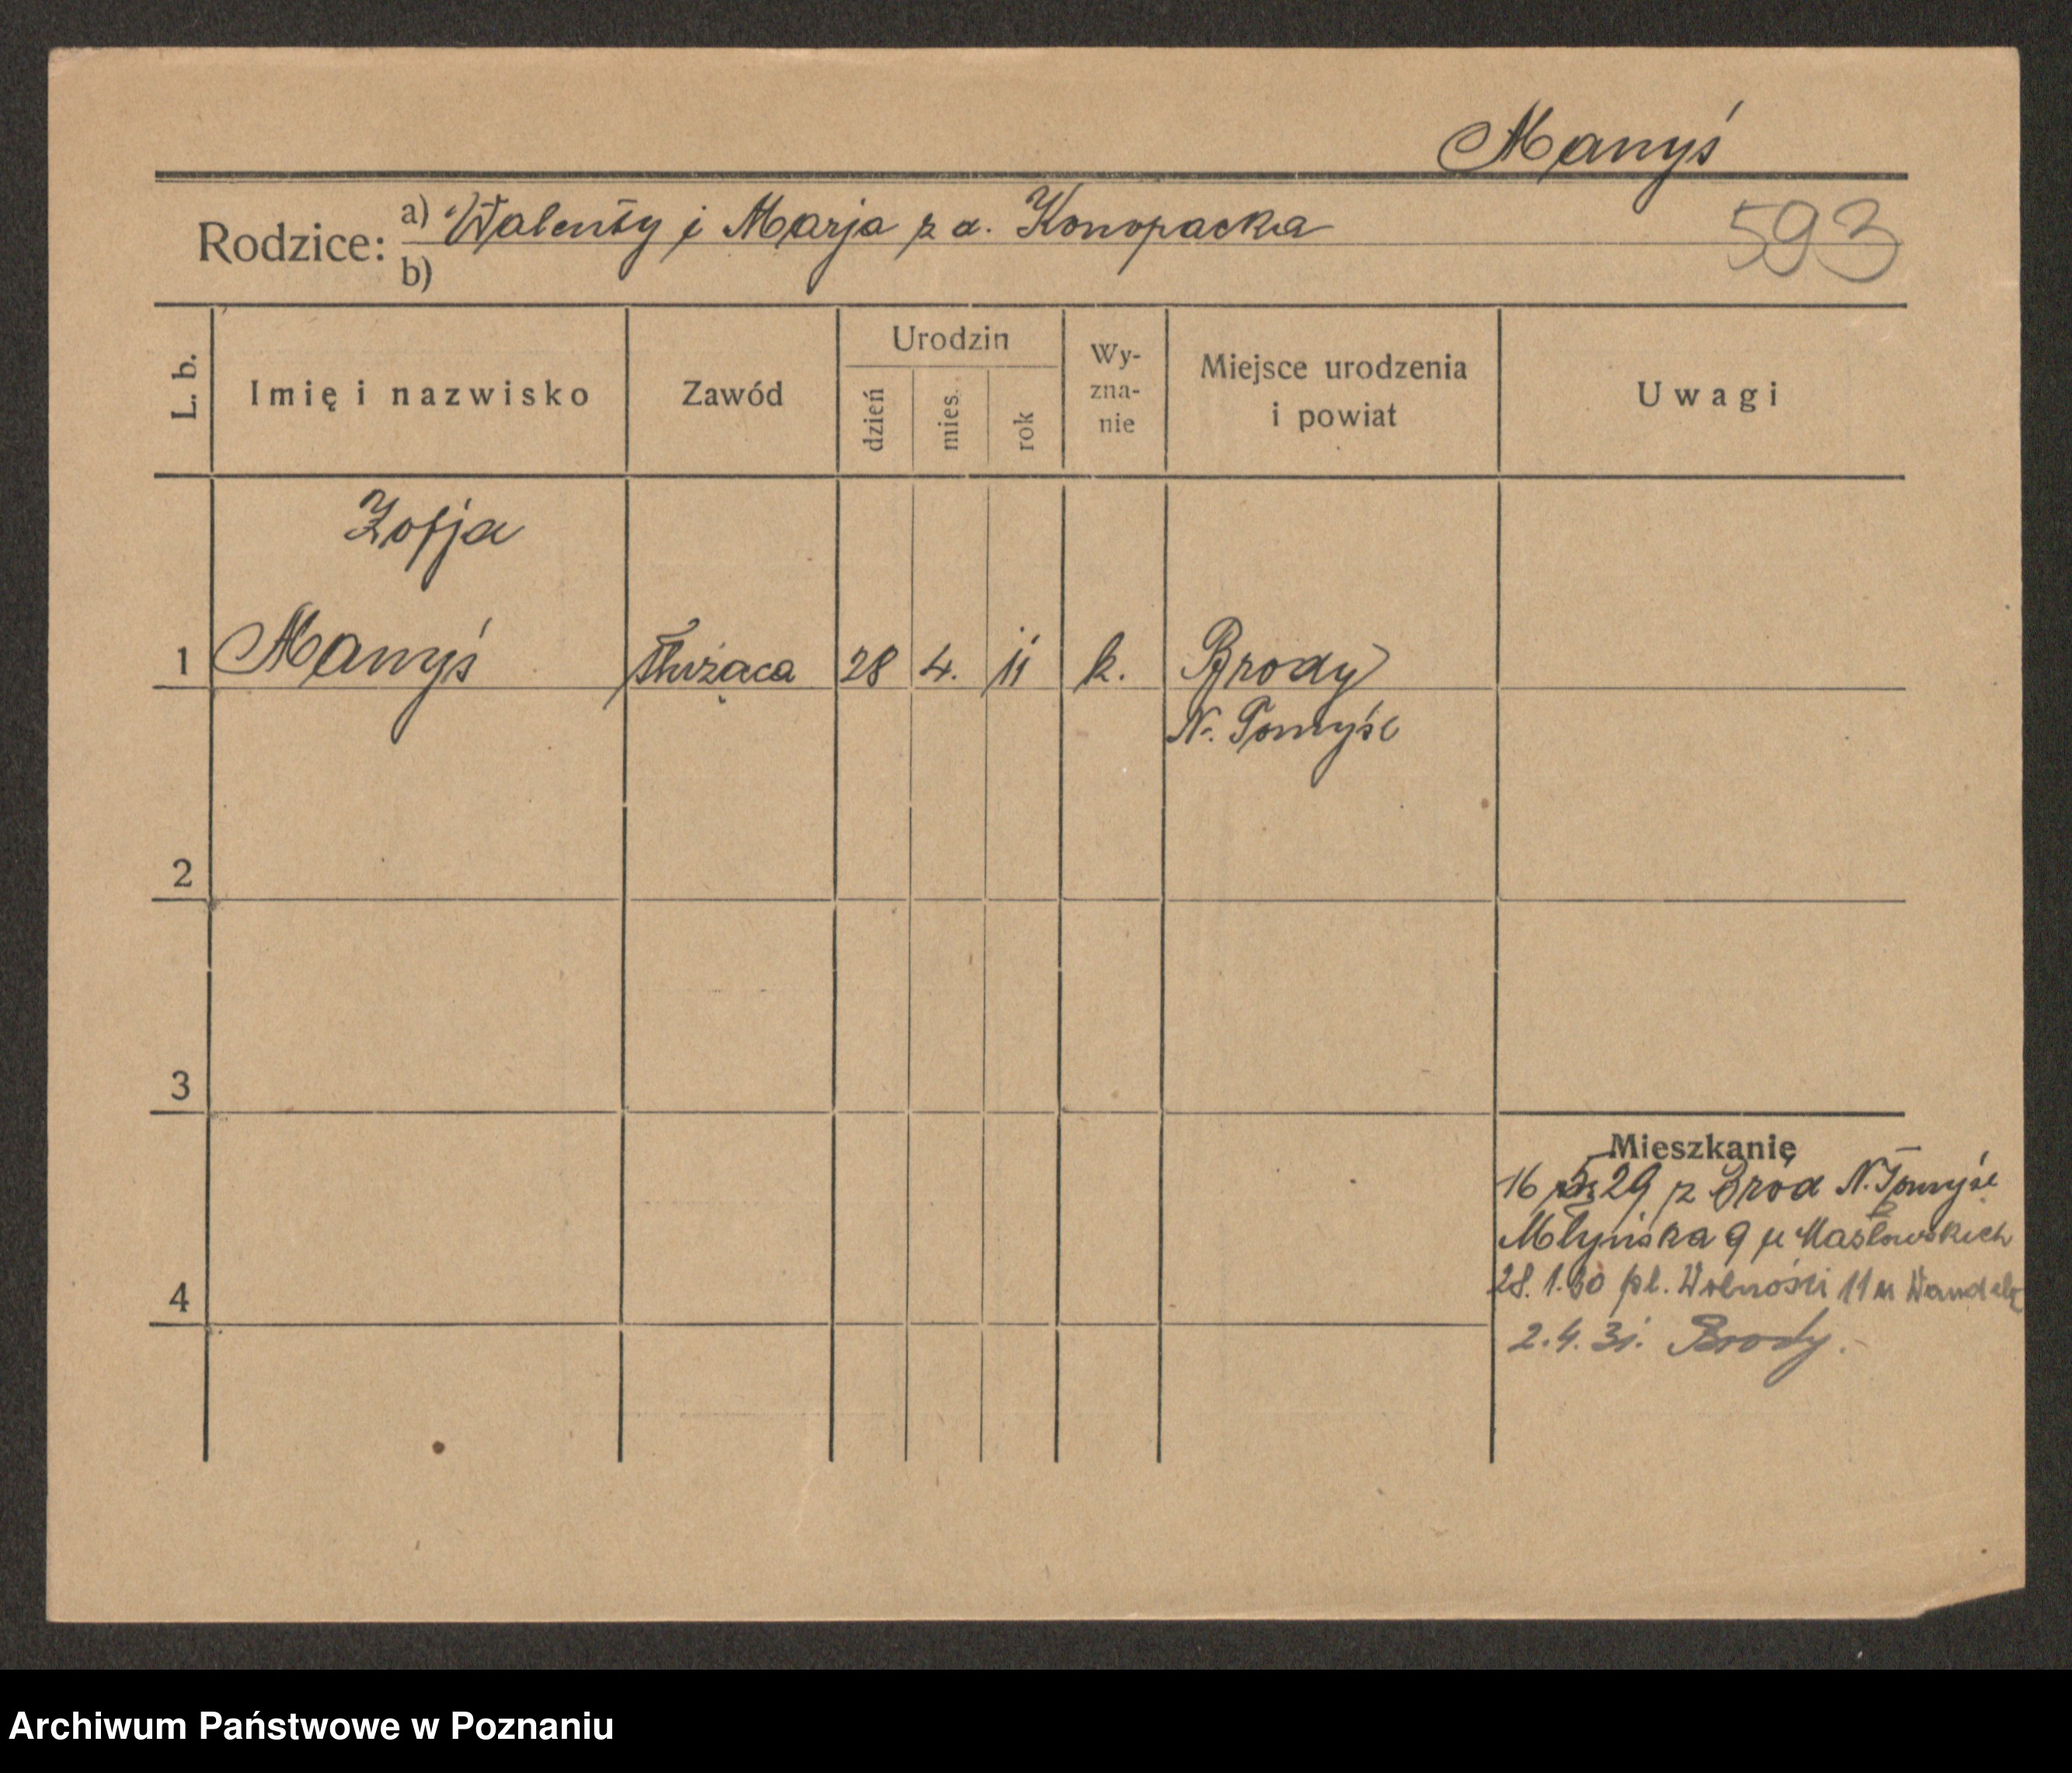 Manyś
Rodzice: a) Walenty i Marja z d. Konopacka
593
b)
L. b.
Imię i nazwisko
Zawód
Urodzin
dzień
mies.
rok
Wy-
zna-
nie
Miejsce urodzenia
i powiat
Uwagi
Zofja
1 Manyś Służąca 28 4. 11 k. Brody
N. Tomyśl
2
3
Mieszkanie
16 29 z Bród N. Tomyśl
Młyńska 9 u Masłowskich
28. 1. 30 pl. Wolności 11 u
4
2. 4. 31. Brody.
Archiwum Państwowe w Poznaniu